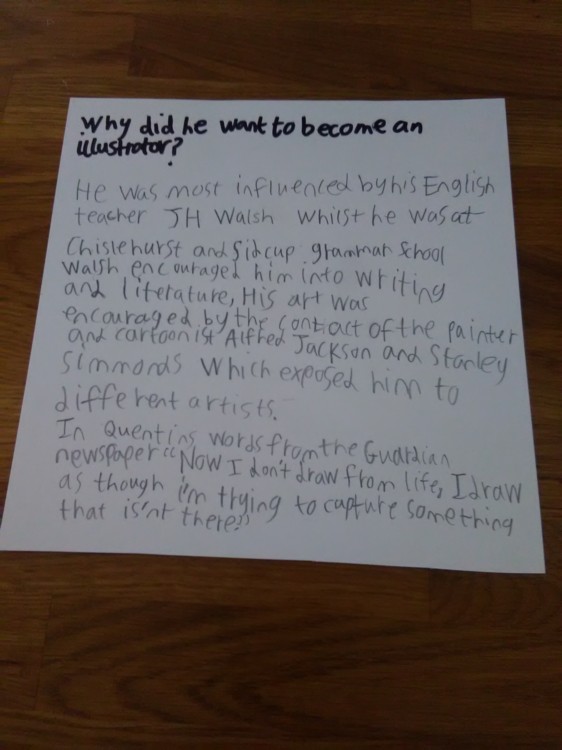 Why did he want to become an
illustrator?
He was most influenced by his English
teacher JH Walsh whilst he was at
Chislehurst and Sidcup grammar School
Walsh encouraged him into writing
and literature, His art was
encouraged by the contact of the painter
and cartoonist Alfred Jackson and Stanley
Simmonds which exposed him to
different artists.
In Quentins words from the Guardian
newspaper "Now I don't draw from life, I draw
as though i'm trying to capture something
that is'nt there."